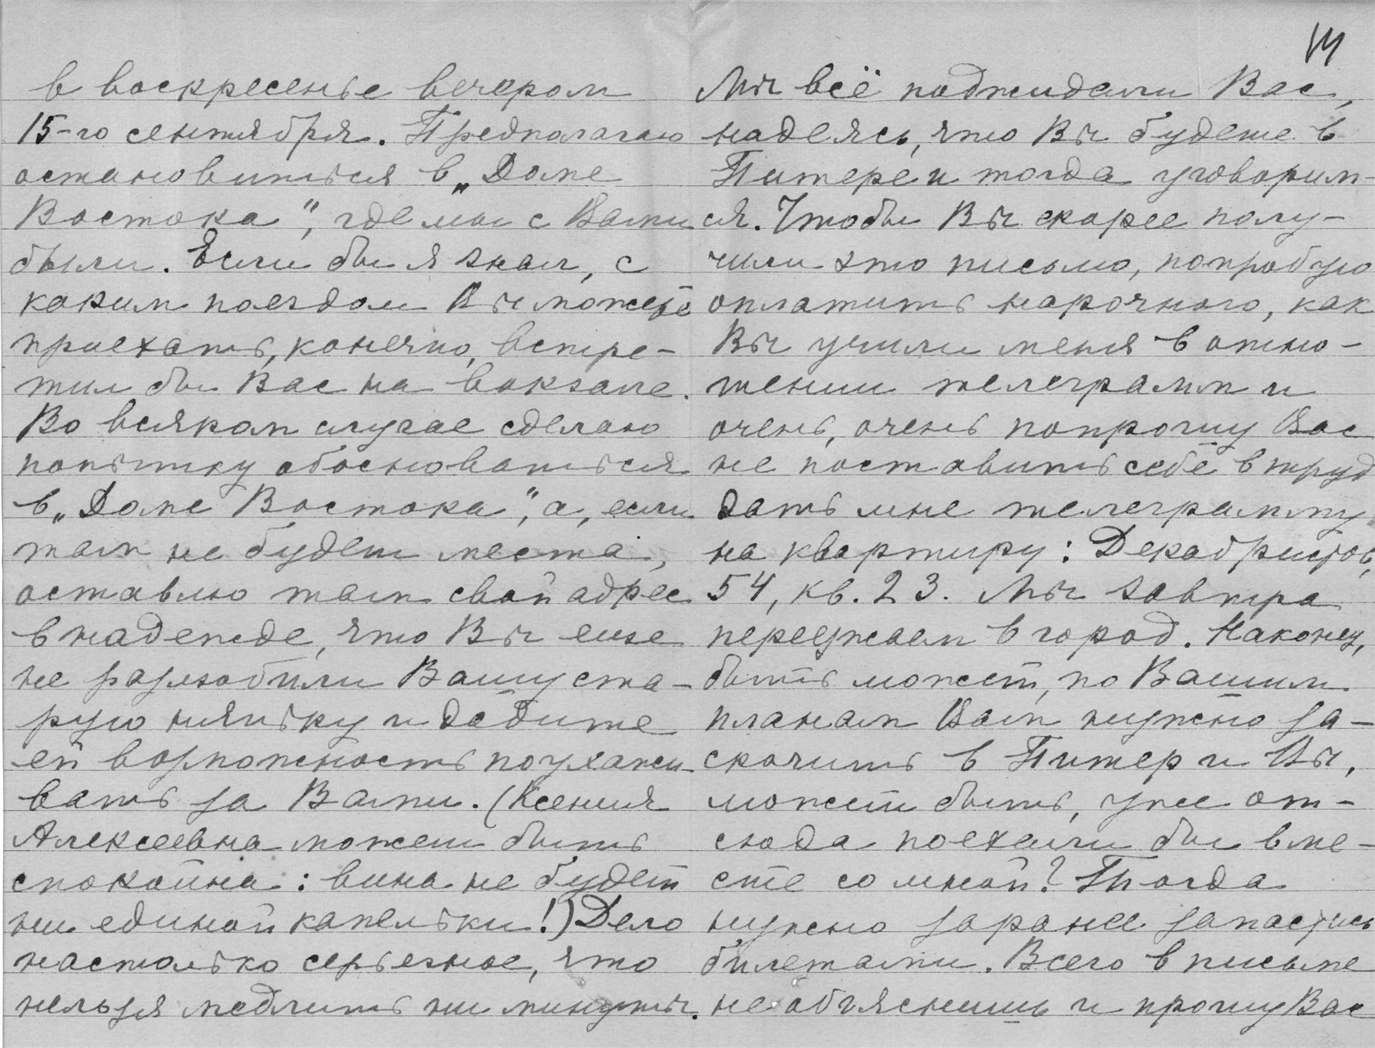 14
в воскресенье вечером
15-го сентября. Предполагаю
остановиться в „Доме
Востока", где мы с Вами
были. Если бы я знал, с
каким поездом Вы можете
приехать, конечно, встре-
тил бы Вас на вокзале.
Во всяком случае сделаю
попытку обосноваться
в „Доме Востока", а, если
там не будет места,
оставлю там свой адрес
в надежде, что Вы еще
не разлюбили Вашу ста-
рую няньку и дадите
ей возможность поухажи
вать за Вами. (Ксения
Алексеевна может быть
спокойна: вина не будет
ни единой капельки!) Дело
настолько серьезное, что
нельзя медлить ни минуты.
Мы всё поджидали Вас,
надеясь, что Вы будете в
Питере и тогда уговорим-
ся. Чтобы Вы скорее полу-
чили это письмо, попробую
оплатить нарочного, как
Вы учили меня в отно-
шении телеграмм и
очень, очень попрошу Вас
не поставить себе в труд
дать мне телеграмму
на квартиру: Декабристов,
54, кв. 23. Мы завтра
переезжаем в город. Наконец,
быть может, по Вашим
планам Вам нужно за-
скочить в Питер и Вы,
может быть, уже от-
сюда поехали бы вме-
сте со мной? Тогда
нужно заранее запастись
билетами. Всего в письме
не объяснишь и прошу Вас